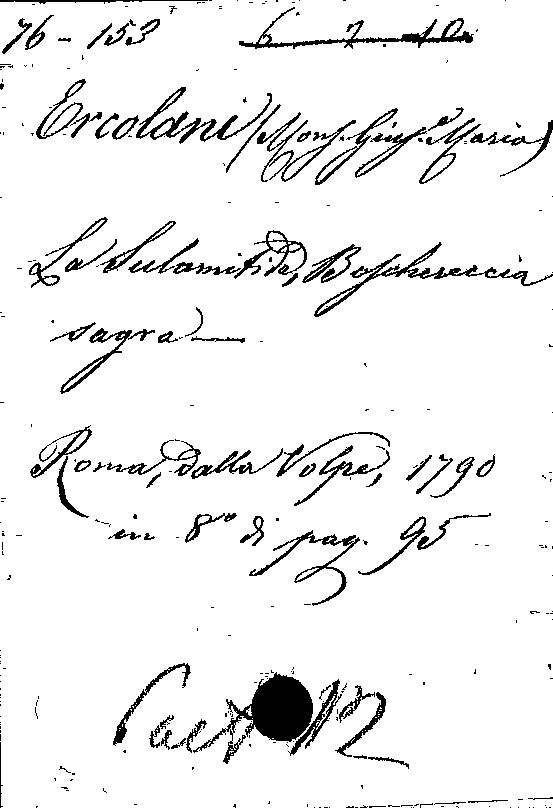 76 - 153 6 7 10
Ercolani (Mons. Gius.e Maria)
La Sulamitide, Boschereccia
sagra —
Roma, dalla Volpe, 1790
in 8° di pag. 95